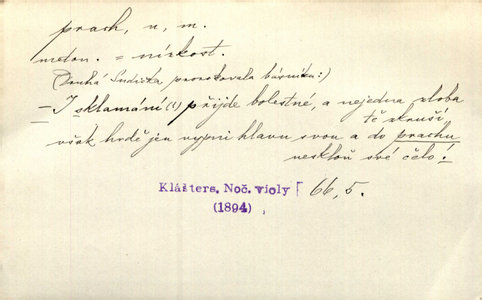 prach, u, m.
meton. = nízkost.
(Druhá Sudička prorokovala básníku:)
— I sklamání (!) přijde bolestné, a nejedna zloba
tě zkruší
však hrdě jen vypni hlavu svou a do prachu
neskloň své čelo!
Klášters. Noč. violy 66, 5.
(1894)